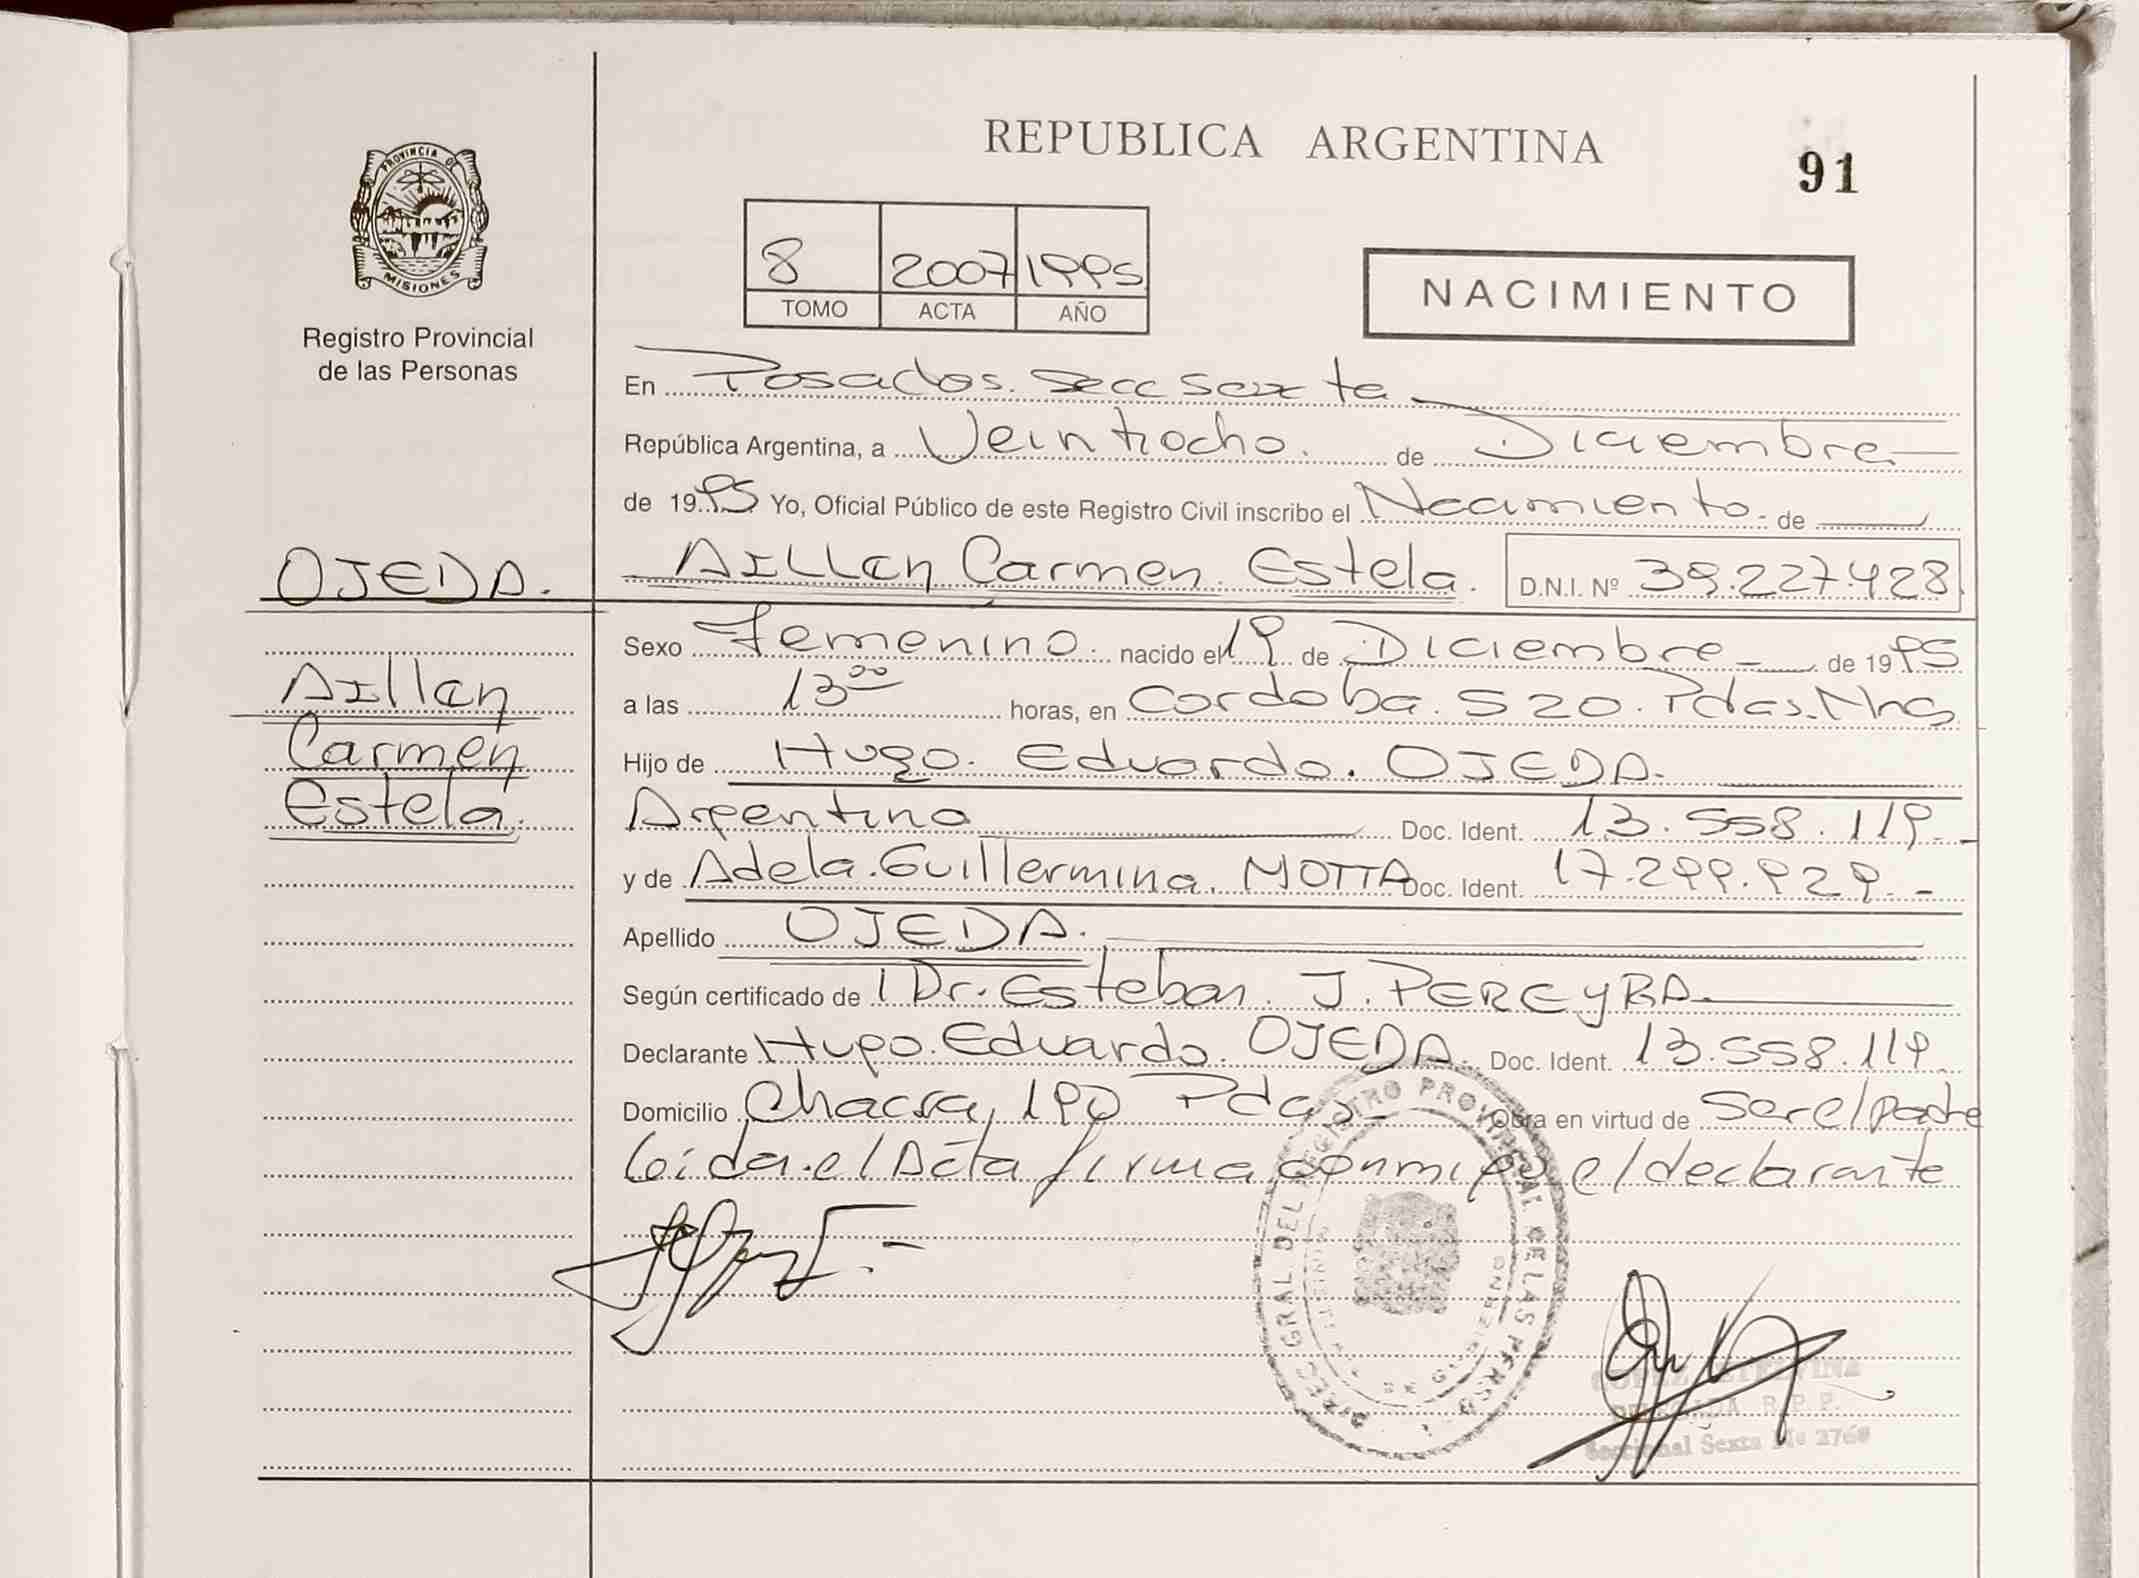 REPUBLICA ARGENTINA
91
PROVINCIA DE
MISIONES
Registro Provincial
de las Personas
8 2007 1995
TOMO ACTA AÑO
NACIMIENTO
En Posadas. Secc Sexta
República Argentina, a Veintiocho. de Diciembre.
de 1995 Yo, Oficial Público de este Registro Civil inscribo el Nacimiento. de
OJEDA. Aillen Carmen Estela. D.N.I. Nº 39.227.428
Sexo Femenino. nacido el 19 de Diciembre de 1995
Aillen
a las 13 00 horas, en Cordoba. 520. Pdas. Mnes
Carmen
Hijo de Hugo. Eduardo. OJEDA.
Estela.
Argentino Doc. Ident. 13.558.119.-
y de Adela. Guillermina. MOTTA Doc. Ident. 17.299.929.-
Apellido OJEDA.
Según certificado de Dr. Esteban. J. PEREYRA.
Declarante Hugo. Eduardo. OJEDA. Doc. Ident. 13.558.119
Domicilio Chacra, 190 Pdas Obra en virtud de Ser el padre
Leida el Acta firma conmigo el declarante
GRAL DEL REGISTRO PROVINCIAL DE LAS PERSO
GOBIERNO
DELEGADA R.P.P.
Seccional Sexta